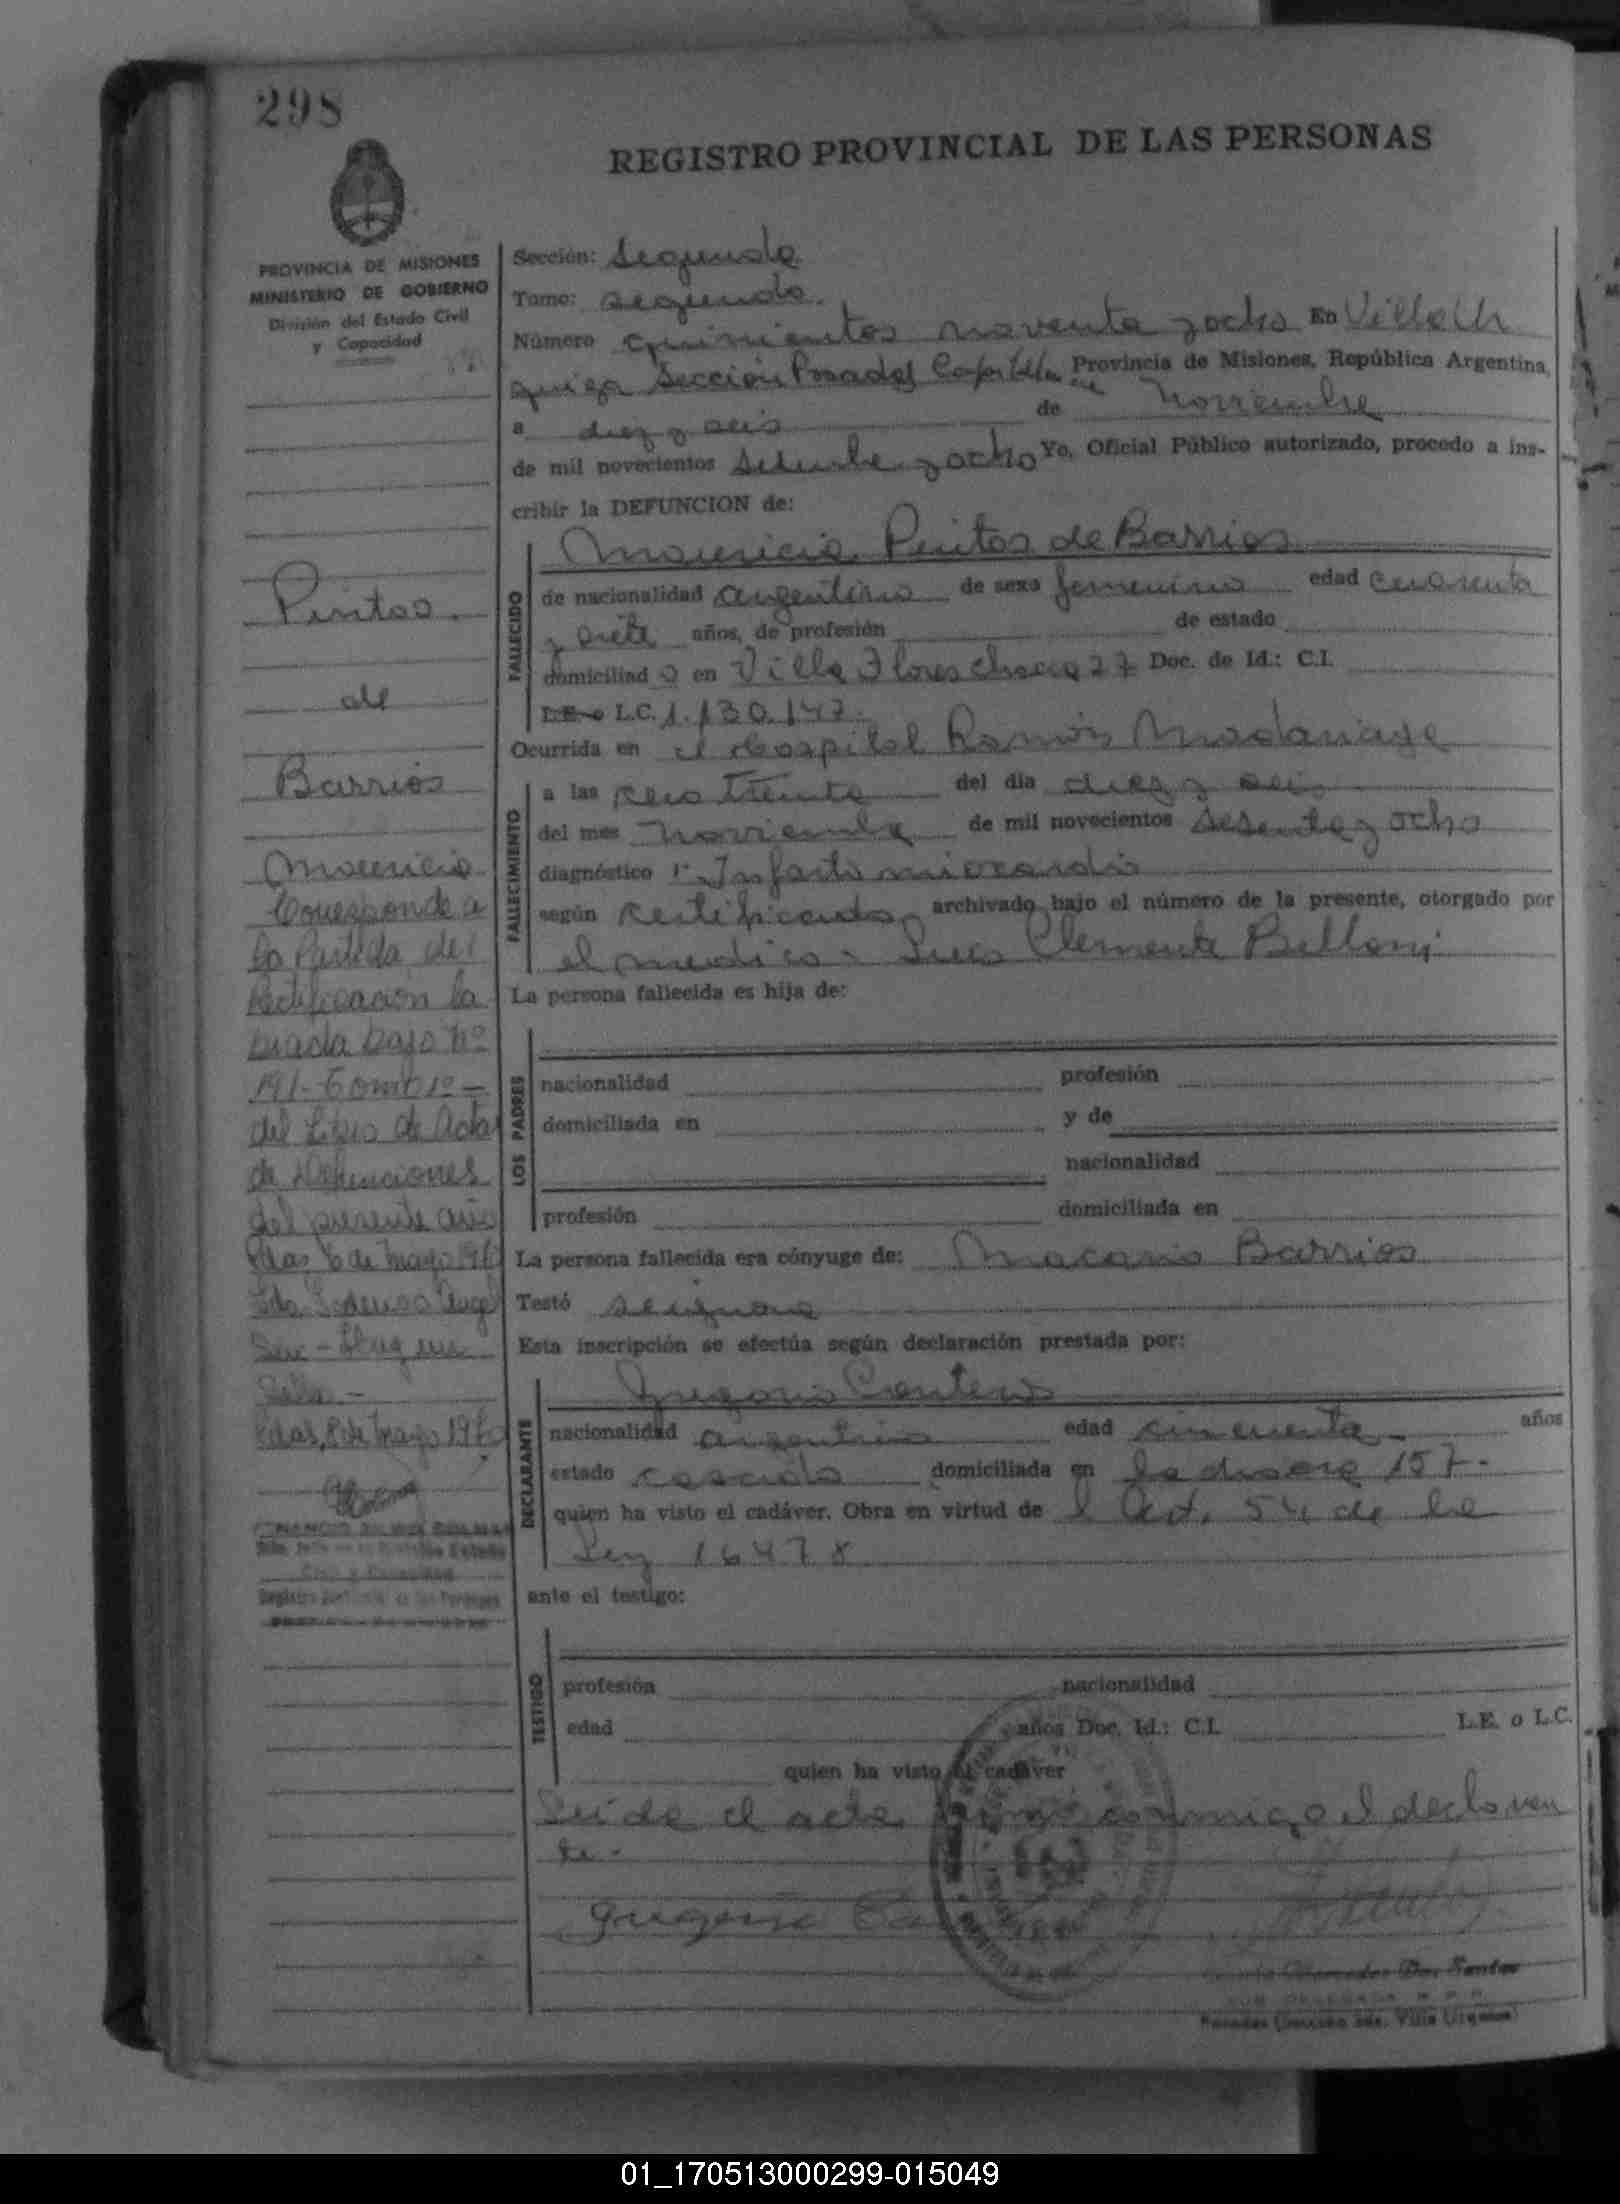 298
REGISTRO PROVINCIAL DE LAS PERSONAS
PROVINCIA DE MISIONES
MINISTERIO DE GOBIERNO
División del Estado Civil
y Capacidad
Sección: Segunda
Tomo: segundo.
Número quinientos noventa y ocho En Villa Ur
quiza Sección Posadas Capital Provincia de Misiones, República Argentina,
a diez y seis de Noviembre
de mil novecientos sesenta y ocho Yo, Oficial Público autorizado, procedo a ins-
cribir la DEFUNCION de:
FALLECIDO
Mauricia Pintos de Barrios
de nacionalidad argentina de sexo femenino edad cuarenta
y siete años, de profesión de estado
domiciliad a en Villa Flores chacra 27 Doc. de Id.: C.I.
L.E. o L.C. 1.130.147.
Ocurrida en el Hospital Ramón Madariaga
FALLECIMIENTO
a las cero treinta del día diez y seis
del mes noviembre de mil novecientos sesenta y ocho
diagnóstico Infarto miocardio
según certificado archivado bajo el número de la presente, otorgado por
el medico Luis Clemente Belloni
La persona fallecida es hija de:
LOS PADRES
nacionalidad profesión
domiciliada en y de
nacionalidad
profesión domiciliada en
La persona fallecida era cónyuge de: Macario Barrios
Testó se ignora
Esta inscripción se efectúa según declaración prestada por:
DECLARANTE
Gregorio Centeno
nacionalidad argentina edad cincuenta años
estado casado domiciliada en la chacra 157.
quien ha visto el cadáver. Obra en virtud de l Art. 54 de la
Ley 16478
ante el testigo:
TESTIGO
profesión nacionalidad
edad años Doc. Id.: C.I. L.E. o L.C.
quien ha visto el cadáver
Leida el acta firma conmigo el declaran
te.
Gregorio
Mercedes Dos Santos
SUB DELEGADA R.P.P.
Posadas (Sección 2da. Villa Urquiza)
Pintos.
de
Barrios
Mauricia
Corresponde a
la Partida de
Rectificación la
brada bajo Nº
191- Tomo 1º-
del Libro de Actas
de Defunciones
del presente año
Pdas, 6 de Mayo 19
Sello.-
Pdas, 8 de Mayo 19
Civil y Capacidad
Registro Provincial de las Personas
01_170513000299-015049